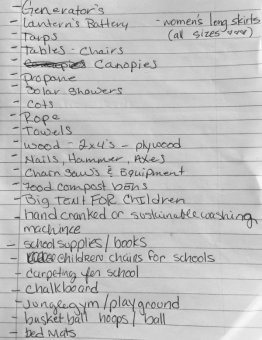 - Generator's
- Lantern's Battery
- women's long skirts
(all sizes
- Tarps
- Tables - Chairs
- Canopies
- Propane
- Solar Showers
- Cots
- Rope
- Towels
- Wood - 2x4's - plywood
- Nails, Hammer, Axes
- Chain Saws & Equipment
- Food compost bens
- Big Tent FOR Children
- hand cranked or sustainable washing
machince
- school supplies / books
- children chairs for schools
- carpeting for school
- Chalkboard
- Junglegym / playground
- basket ball hoops / ball
- bed mats